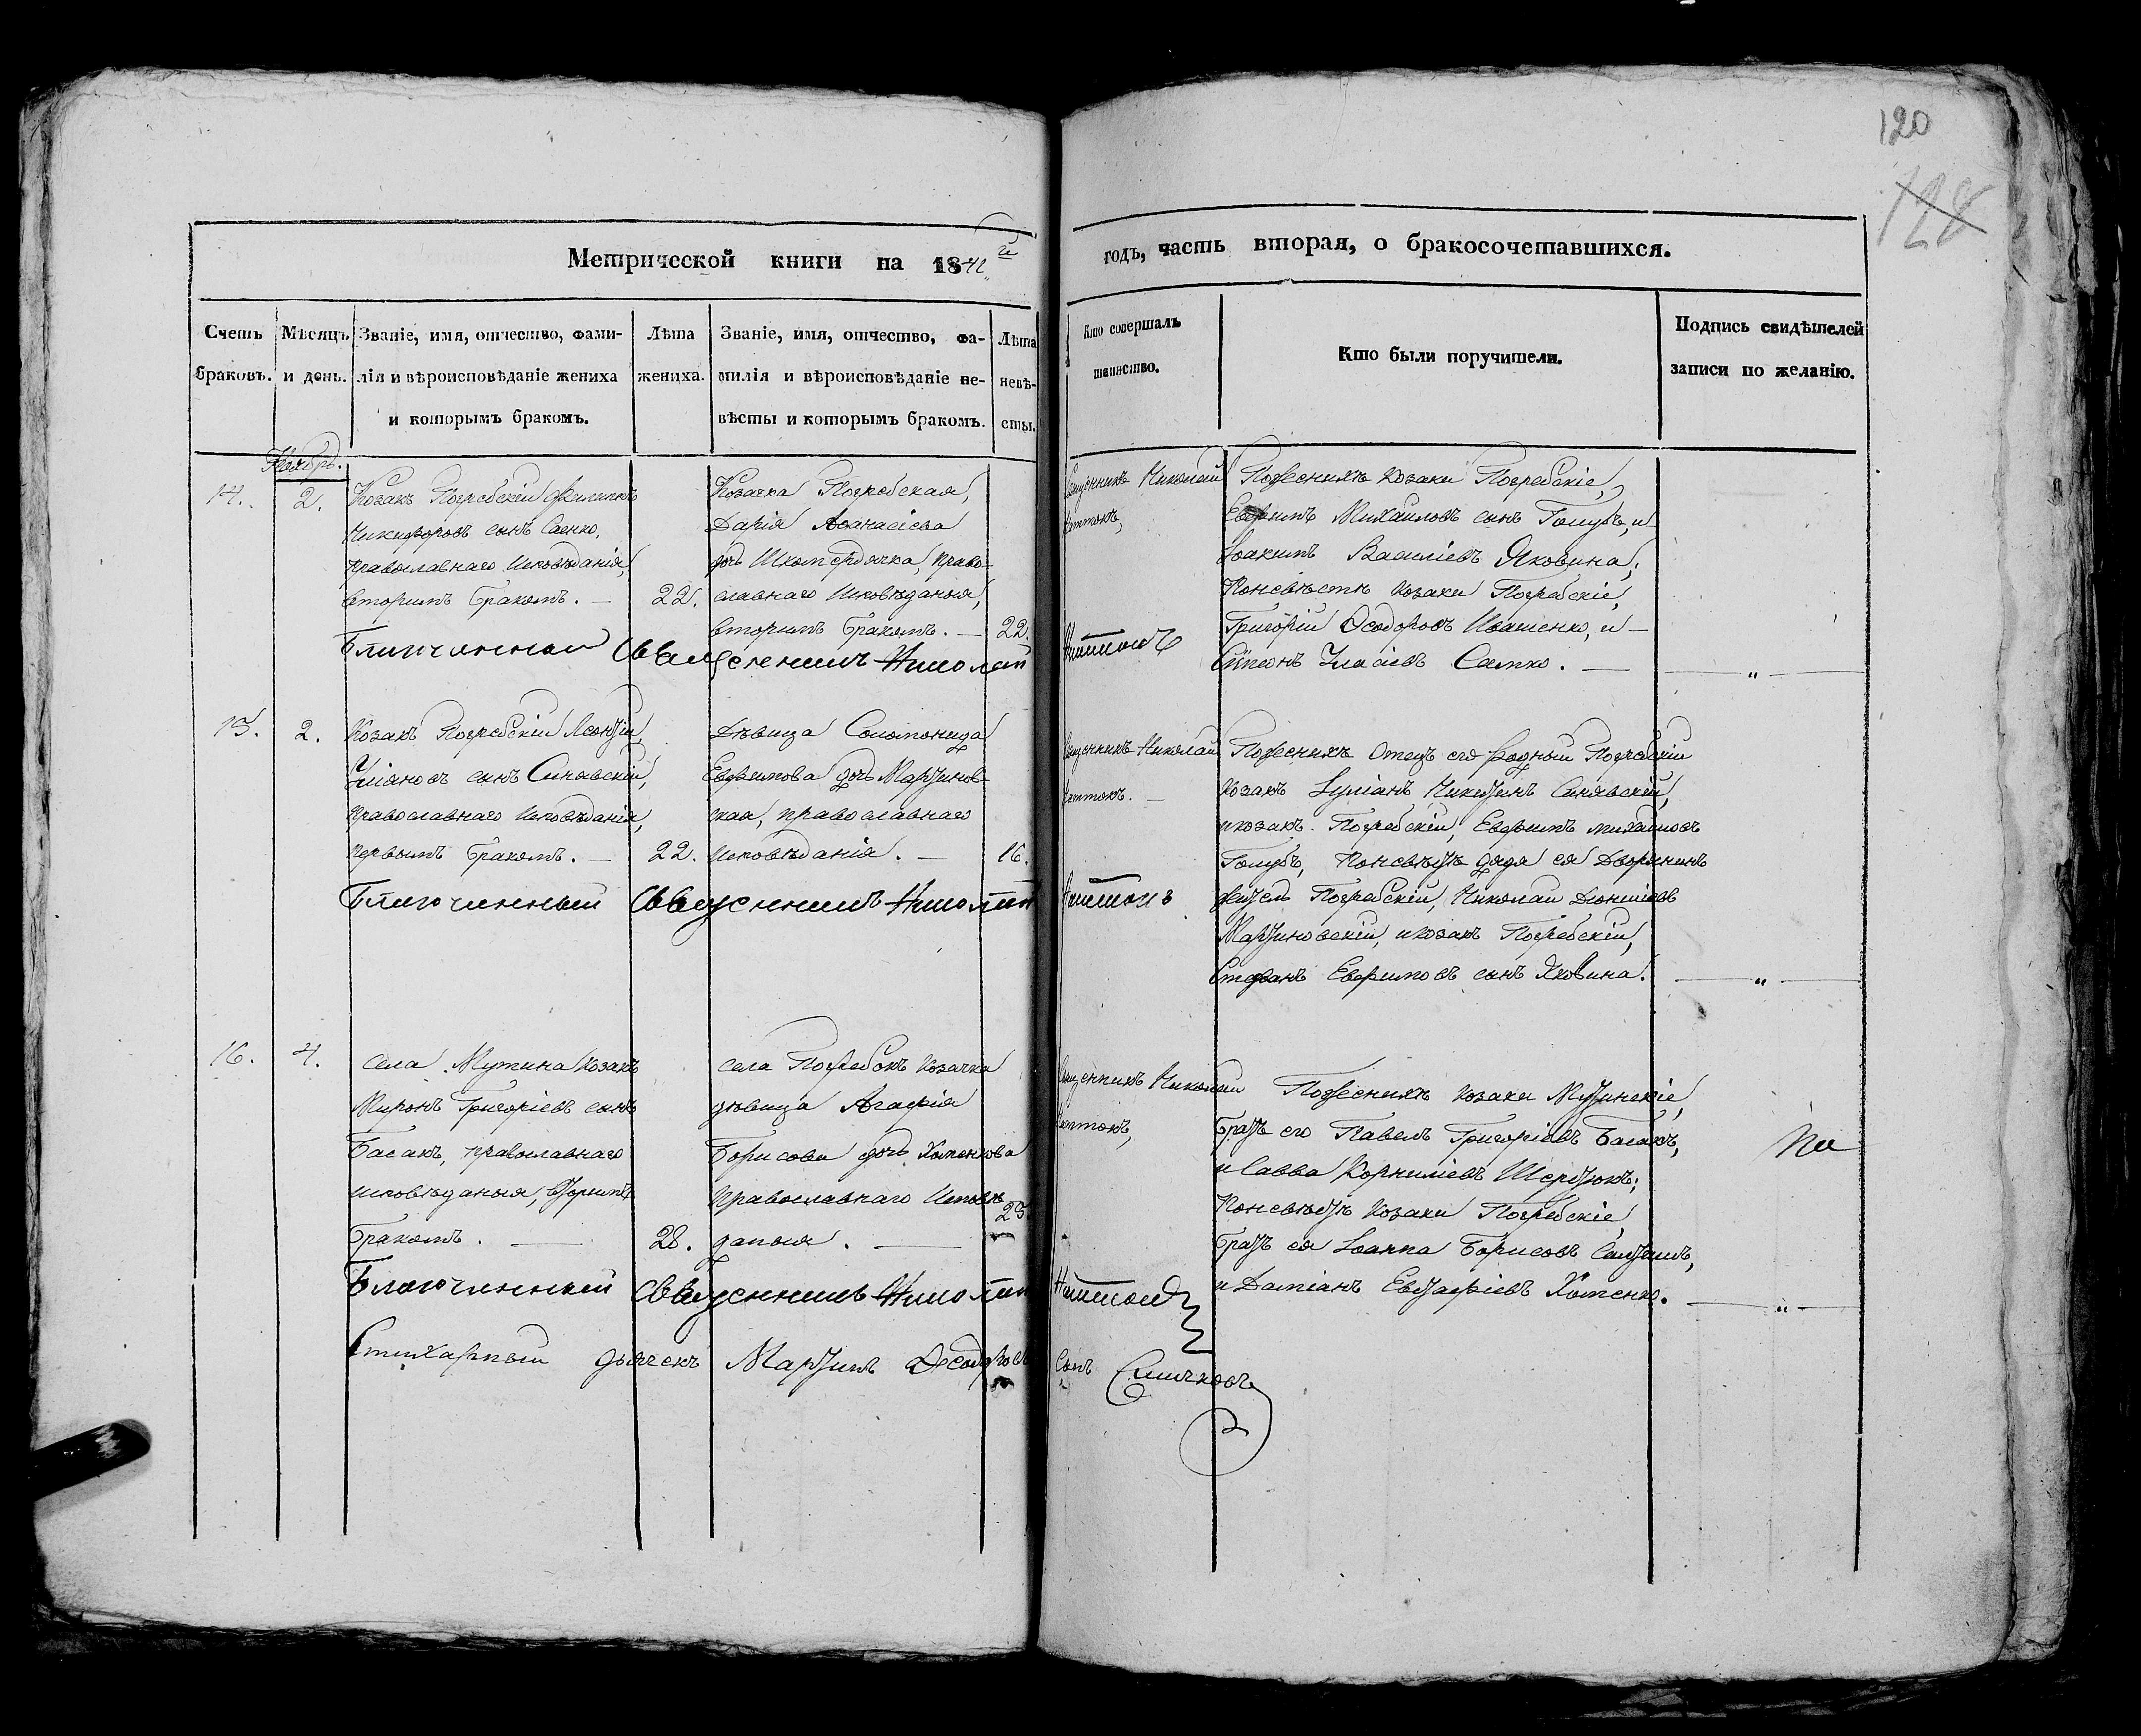 120
128
Метрической книги на 1842й
годъ, часть вторая, о бракосочетавшихся.
Счетъ браковъ.
Мѣсяцъ и день.
Званіе, имя, отчество, фами-
лія и вѣроисповѣданіе жениха
и которымъ бракомъ.
Лѣта
жениха.
Званіе, имя, отчество, фа-
милія и вѣроисповѣданіе не-
вѣсты и которымъ бракомъ.
Лѣта
невѣ-
сты.
Кто совершалъ
таинство.
Кто были поручители.
Подпись свидѣтелей
записи по желанію.
Ноябрь.
14.
2.
Козакъ Погребскій Филиппъ
Никифоровъ сынъ Саенко,
православнаго исповѣданія,
вторымъ бракомъ.
22.
Козачка Погребская,
Дарія Аѳанасіева
дочь право-
славнаго исповѣданыя,
вторымъ бракомъ.
22.
Священникъ Николай
По женихѣ козаки Погребскіе,
Евфимъ Михаиловъ сынъ Голубъ, и
Іоакимъ Василіевъ Яковина;
По невѣстѣ козаки Погребскіе,
Григорій Ѳеодоровъ Ивашенко, и
Власіевъ
Благочинный Священникъ Николай
15.
2.
Козакъ Погребскій Леонтій
сынъ Синявскій,
православнаго исповѣданія,
первымъ бракомъ.
22.
Дѣвица Соломонида
Евфимова дочь Мартинов-
ская, православнаго
исповѣданія.
16.
Священникъ Николай
По женихѣ отецъ его родный Погребскій
козакъ Іуліанъ Никитинъ Синявскій,
и козакъ Погребскій, Евфимъ Михаиловъ
Голубъ, По невѣстѣ дядя ея Дворянинъ
житель Погребскій, Николай
Мартиновскій, и козакъ Погребскій,
Стефанъ Евфимовъ сынъ Яковина.
Благочинный Священникъ Николай
16.
4.
села Мутина козакъ
Миронъ Григоріевъ сынъ
Басакъ, православнаго
исповѣданыя, вторымъ
бракомъ.
28.
села Погребокъ козачка
дѣвица Агафія
Борисова дочь Хоменкова
православнаго исповѣ
даныя.
23.
Священникъ Николай
По женихѣ козаки Мутинскіе,
братъ его Павелъ Григоріевъ Басакъ,
и Савва Корниліевъ Шердюкъ;
По невѣстѣ козаки Погребскіе,
братъ ея Іоанна Борисовъ
и Даміанъ Евстафіевъ Хоменко.
По
Благочинный Священникъ Николай
Стихарный дьячекъ Мартинъ Ѳеодоровъ
сынъ